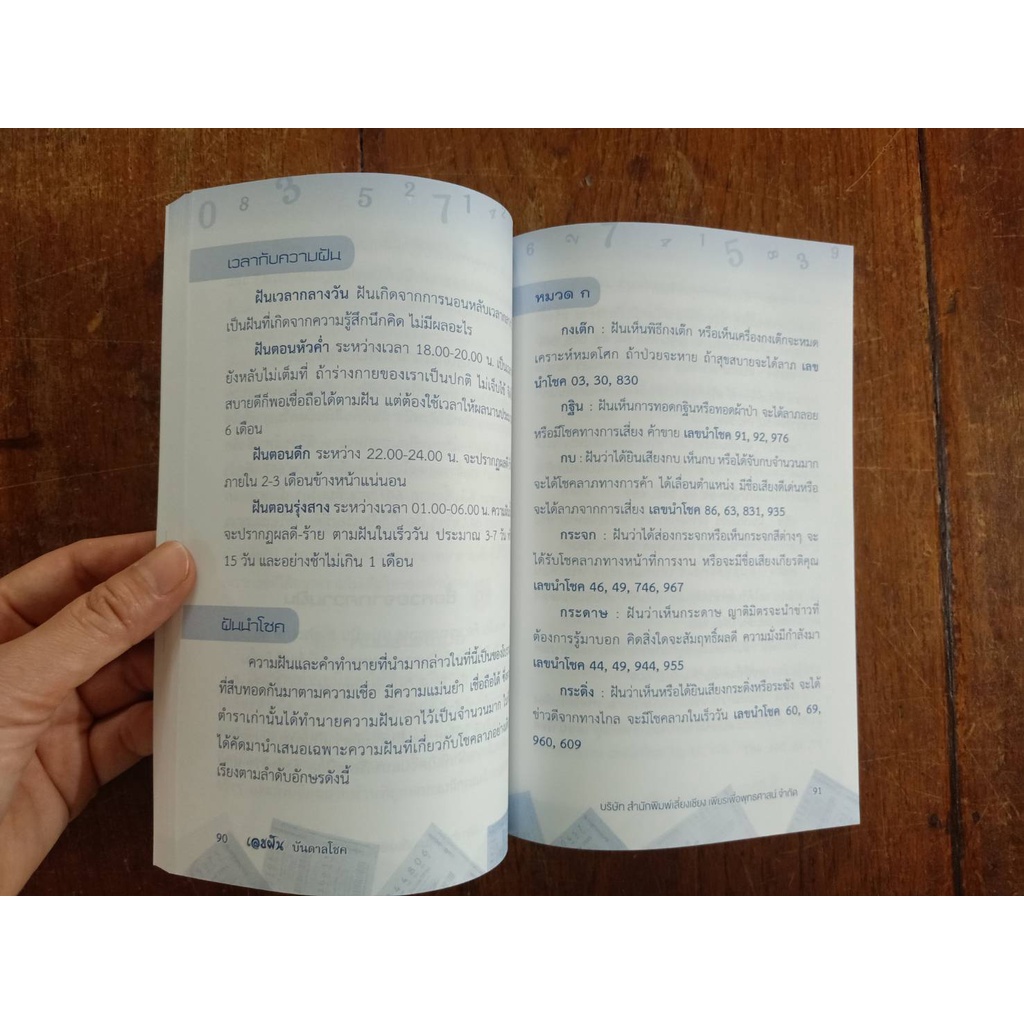 0 8 3 5 2 7 1
เวลากับความฝัน
ฝันเวลากลางวัน ฝันเกิดจากการนอนหลับเวลากลาง
เป็นฝันที่เกิดจากความรู้สึกนึกคิด ไม่มีผลอะไร
ฝันตอนหัวค่ำ ระหว่างเวลา 18.00-20.00 น. เป็น
ยังหลับไม่เต็มที่ ถ้าร่างกายของเราเป็นปกติ ไม่เจ็บไข้
สบายดีก็พอเชื่อถือได้ตามฝัน แต่ต้องใช้เวลาให้ผลนานประ
6 เดือน
ฝันตอนดึก ระหว่าง 22.00-24.00 น. จะปรากฏผลดี
ภายใน 2-3 เดือนข้างหน้าแน่นอน
ฝันตอนรุ่งสาง ระหว่างเวลา 01.00-06.00 น. ความ
จะปรากฏผลดี-ร้าย ตามฝันในเร็ววัน ประมาณ 3-7 วัน
15 วัน และอย่างช้าไม่เกิน 1 เดือน
ฝันนำโชค
ความฝันและคำทำนายที่นำมากล่าวในที่นี้เป็นของ
ที่สืบทอดกันมาตามความเชื่อ มีความแม่นยำ เชื่อถือได้
ตำราเก่านั้นได้ทำนายความฝันเอาไว้เป็นจำนวนมาก
ได้คัดมานำเสนอเฉพาะความฝันที่เกี่ยวกับโชคลาภอย่าง
เรียงตามลำดับอักษรดังนี้
90 เลขฝัน บันดาลโชค
6 7 1 5 3 9
หมวด ก
กงเต๊ก : ฝันเห็นพิธีกงเต๊ก หรือเห็นเครื่องกงเต๊กจะหมด
เคราะห์หมดโศก ถ้าป่วยจะหาย ถ้าสุขสบายจะได้ลาภ เลข
นำโชค 03, 30, 830
กฐิน : ฝันเห็นการทอดกฐินหรือทอดผ้าป่า จะได้ลาภลอย
หรือมีโชคทางการเสี่ยง ค้าขาย เลขนำโชค 91, 92, 976
กบ : ฝันว่าได้ยินเสียงกบ เห็นกบ หรือได้จับกบจำนวนมาก
จะได้โชคลาภทางการค้า ได้เลื่อนตำแหน่ง มีชื่อเสียงดีเด่นหรือ
จะได้ลาภจากการเสี่ยง เลขนำโชค 86, 63, 831, 935
กระจก : ฝันว่าได้ส่องกระจกหรือเห็นกระจกสีต่างๆ จะ
ได้รับโชคลาภทางหน้าที่การงาน หรือจะมีชื่อเสียงเกียรติคุณ
เลขนำโชค 46, 49, 746, 967
กระดาษ : ฝันว่าเห็นกระดาษ ญาติมิตรจะนำข่าวที่
ต้องการรู้มาบอก คิดสิ่งใดจะสัมฤทธิ์ผลดี ความมั่งมีกำลังมา
เลขนำโชค 44, 49, 944, 955
กระดิ่ง : ฝันว่าเห็นหรือได้ยินเสียงกระดิ่งหรือระฆัง จะได้
ข่าวดีจากทางไกล จะมีโชคลาภในเร็ววัน เลขนำโชค 60, 69,
960, 609
บริษัท สำนักพิมพ์เลี่ยงเชียง เพียรเพื่อพุทธศาสน์ จำกัด 91